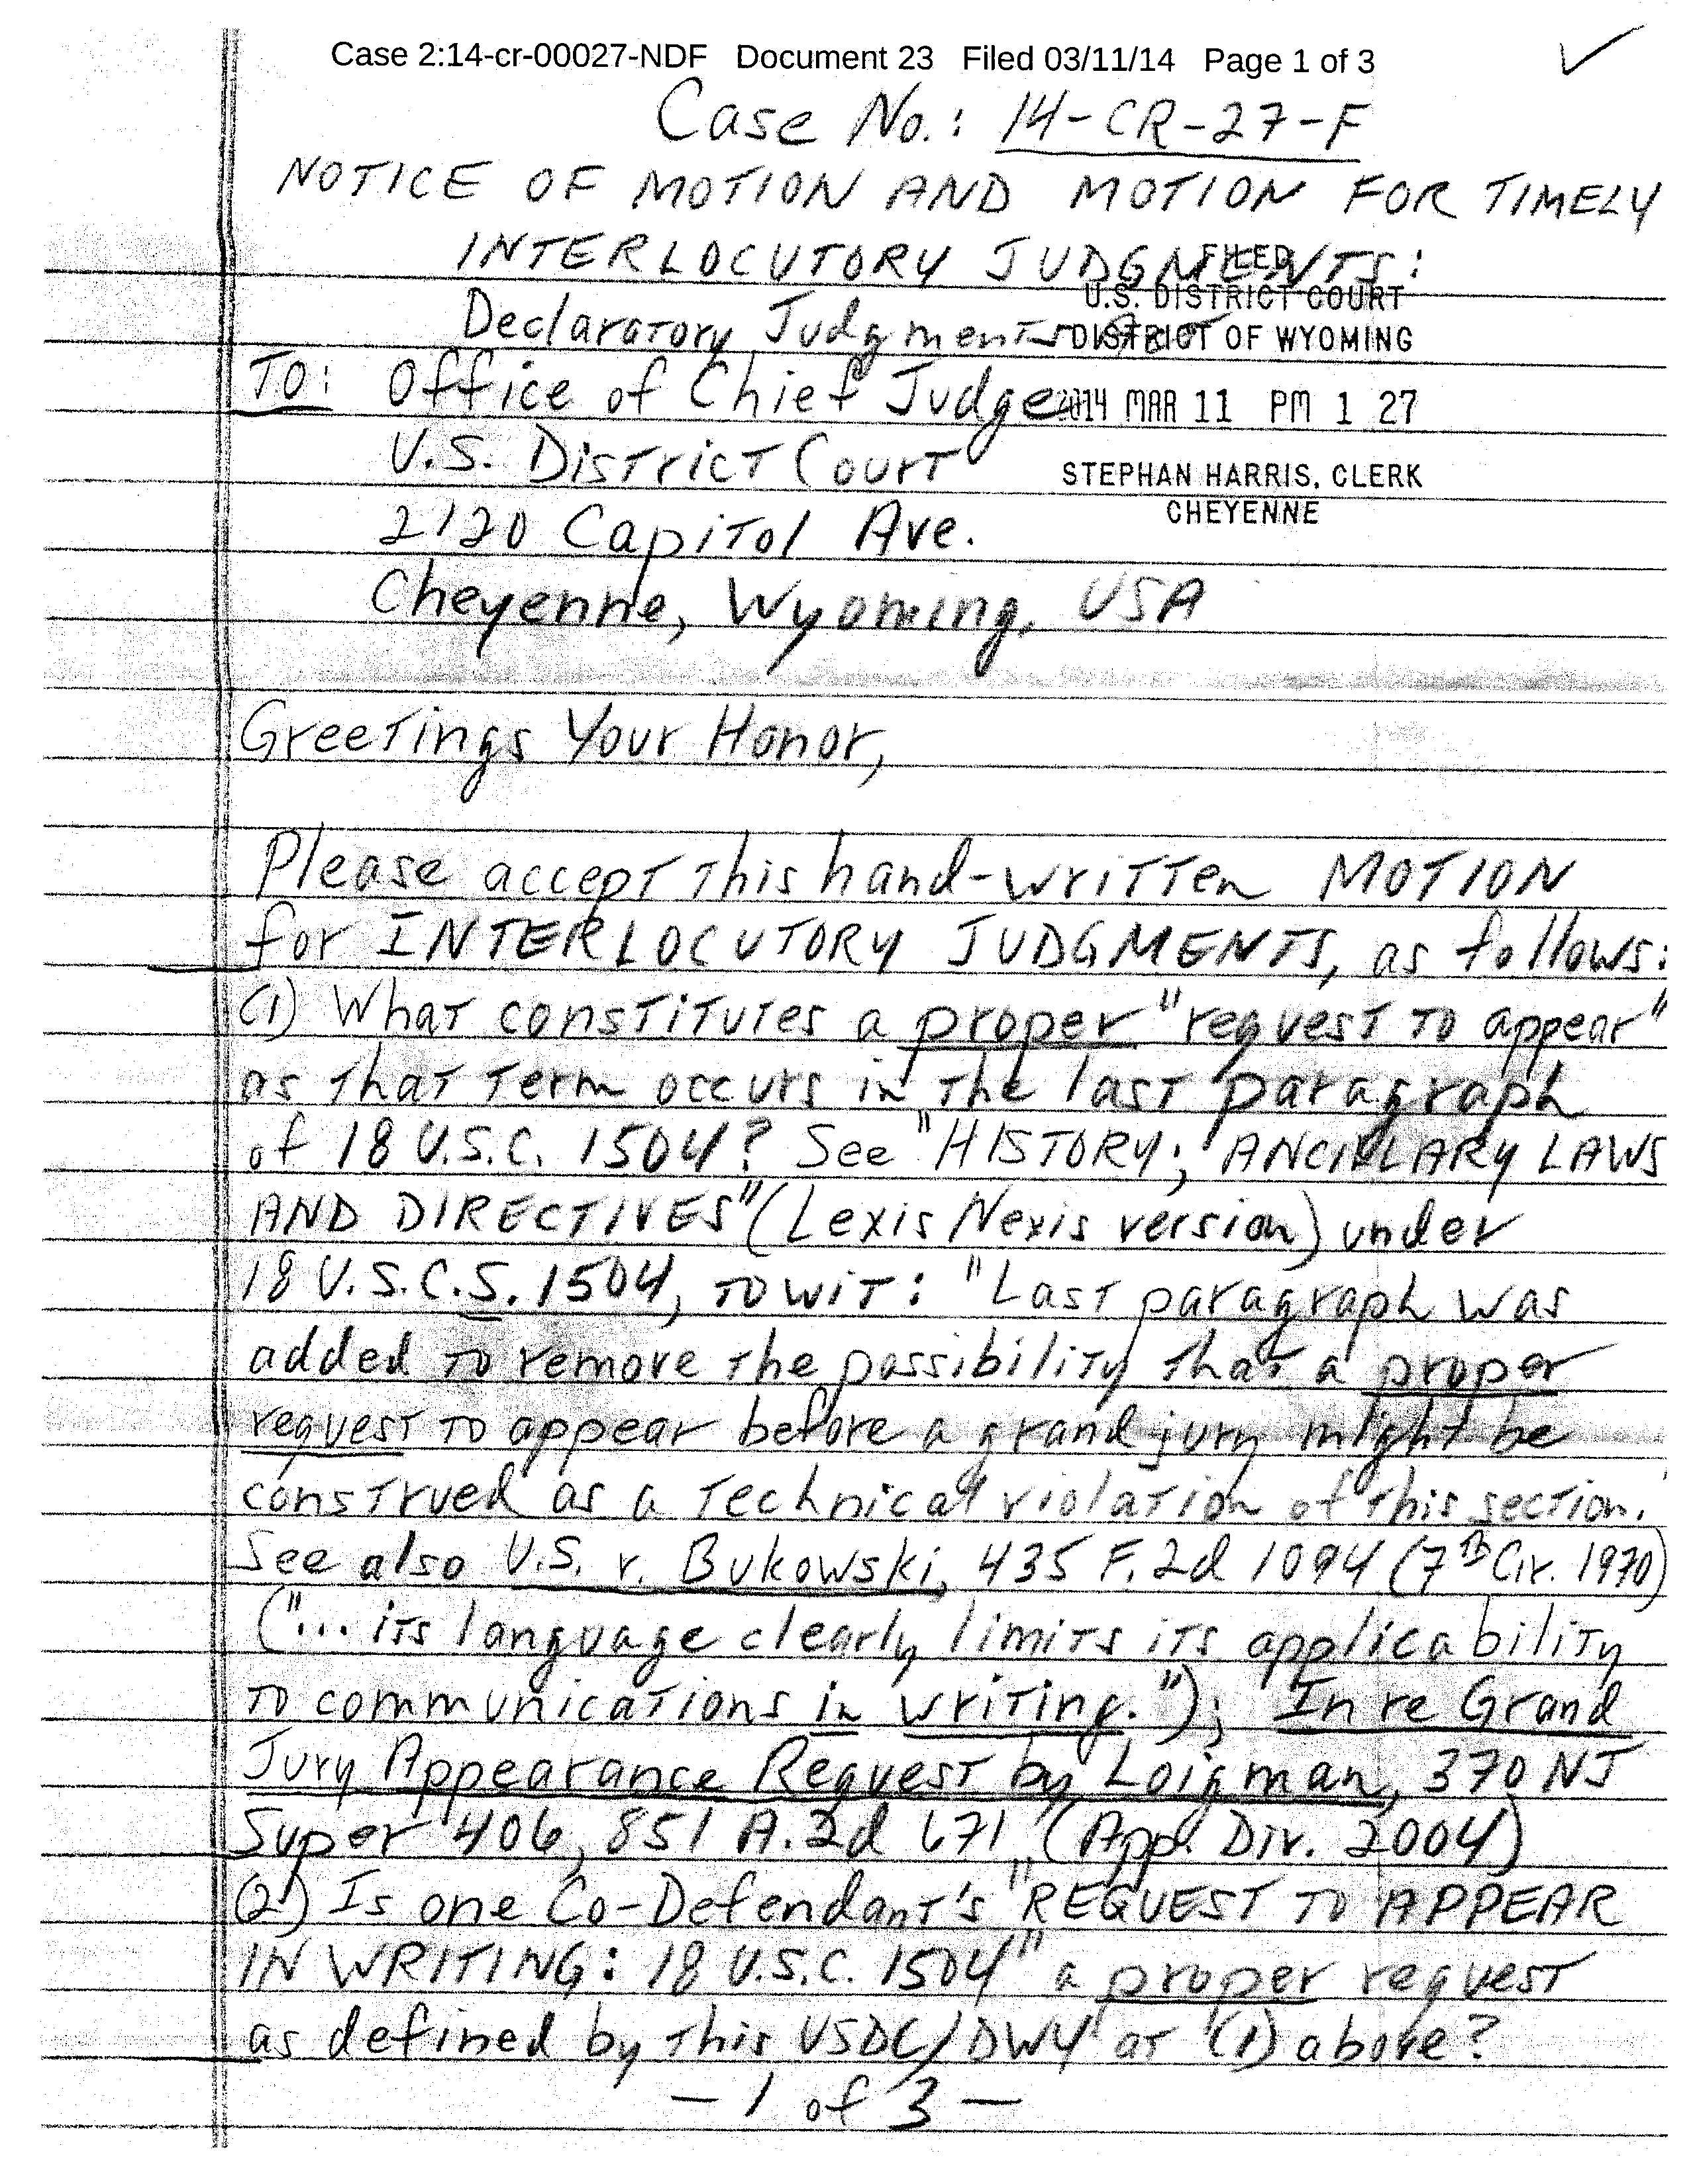 Case 2:14-cr-00027-NDF Document 23 Filed 03/11/14 Page 1 of 3
Case No.: 14-CR-27-F
NOTICE OF MOTION AND MOTION FOR TIMELY
INTERLOCUTORY JUDGMENTS:
FILED
U.S. DISTRICT COURT
Declaratory Judgments Act
DISTRICT OF WYOMING
TO: Office of Chief Judge
2014 MAR 11 PM 1 27
U.S. District Court
STEPHAN HARRIS, CLERK
CHEYENNE
2120 Capitol Ave.
Cheyenne, Wyoming, USA
Greetings Your Honor,
Please accept this hand-written MOTION
for INTERLOCUTORY JUDGMENTS, as follows:
(1) What constitutes a proper "request to appear"
as that term occurs in the last paragraph
of 18 U.S.C. 1504? See "HISTORY; ANCILLARY LAWS
AND DIRECTIVES" (Lexis Nexis version) under
18 U.S.C.S. 1504, to wit: "Last paragraph was
added to remove the possibility that a proper
request to appear before a grand jury might be
construed as a technical violation of this section."
See also U.S. v. Bukowski, 435 F.2d 1094 (7th Cir. 1970)
("... its language clearly limits its applicability
to communications in writing."); In re Grand
Jury Appearance Request by Loigman, 370 NJ
Super 406, 851 A.2d 671 (App. Div. 2004)
(2) Is one Co-Defendant's "REQUEST TO APPEAR
IN WRITING: 18 U.S.C. 1504" a proper request
as defined by this USDC/DWY at (1) above?
- 1 of 3 -